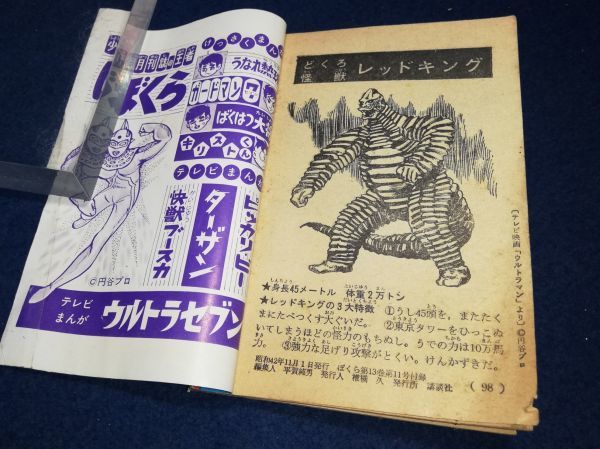 月刊誌の王者
ぼくら
けっさくまん
うなれ熱
ガードマン
ばくはつ大
キリストくん
テレビまん
ターザン
快獣ブースカ
©円谷プロ
テレビ
まんが
ウルトラセブン
どくろ
怪獣
かいじゅう
レッドキング
〔テレビ映画「ウルトラマン」より〕©円谷プロ
★身長45メートル 体重2万トン
★レッドキングの3大特徴 ①うし45頭を、またたく
まにたべつくす大ぐいだ。 ②東京タワーをひっこぬ
いてしまうほどの怪力のもちぬし。うでの力は10万馬
力。 ③強力な足げり攻撃がとくい。けんかずきだ。
昭和42年11月1日発行 ぼくら第13巻第11号付録
編集人 平賀純男 発行人 椎橋 久 発行所 講談社
(98)